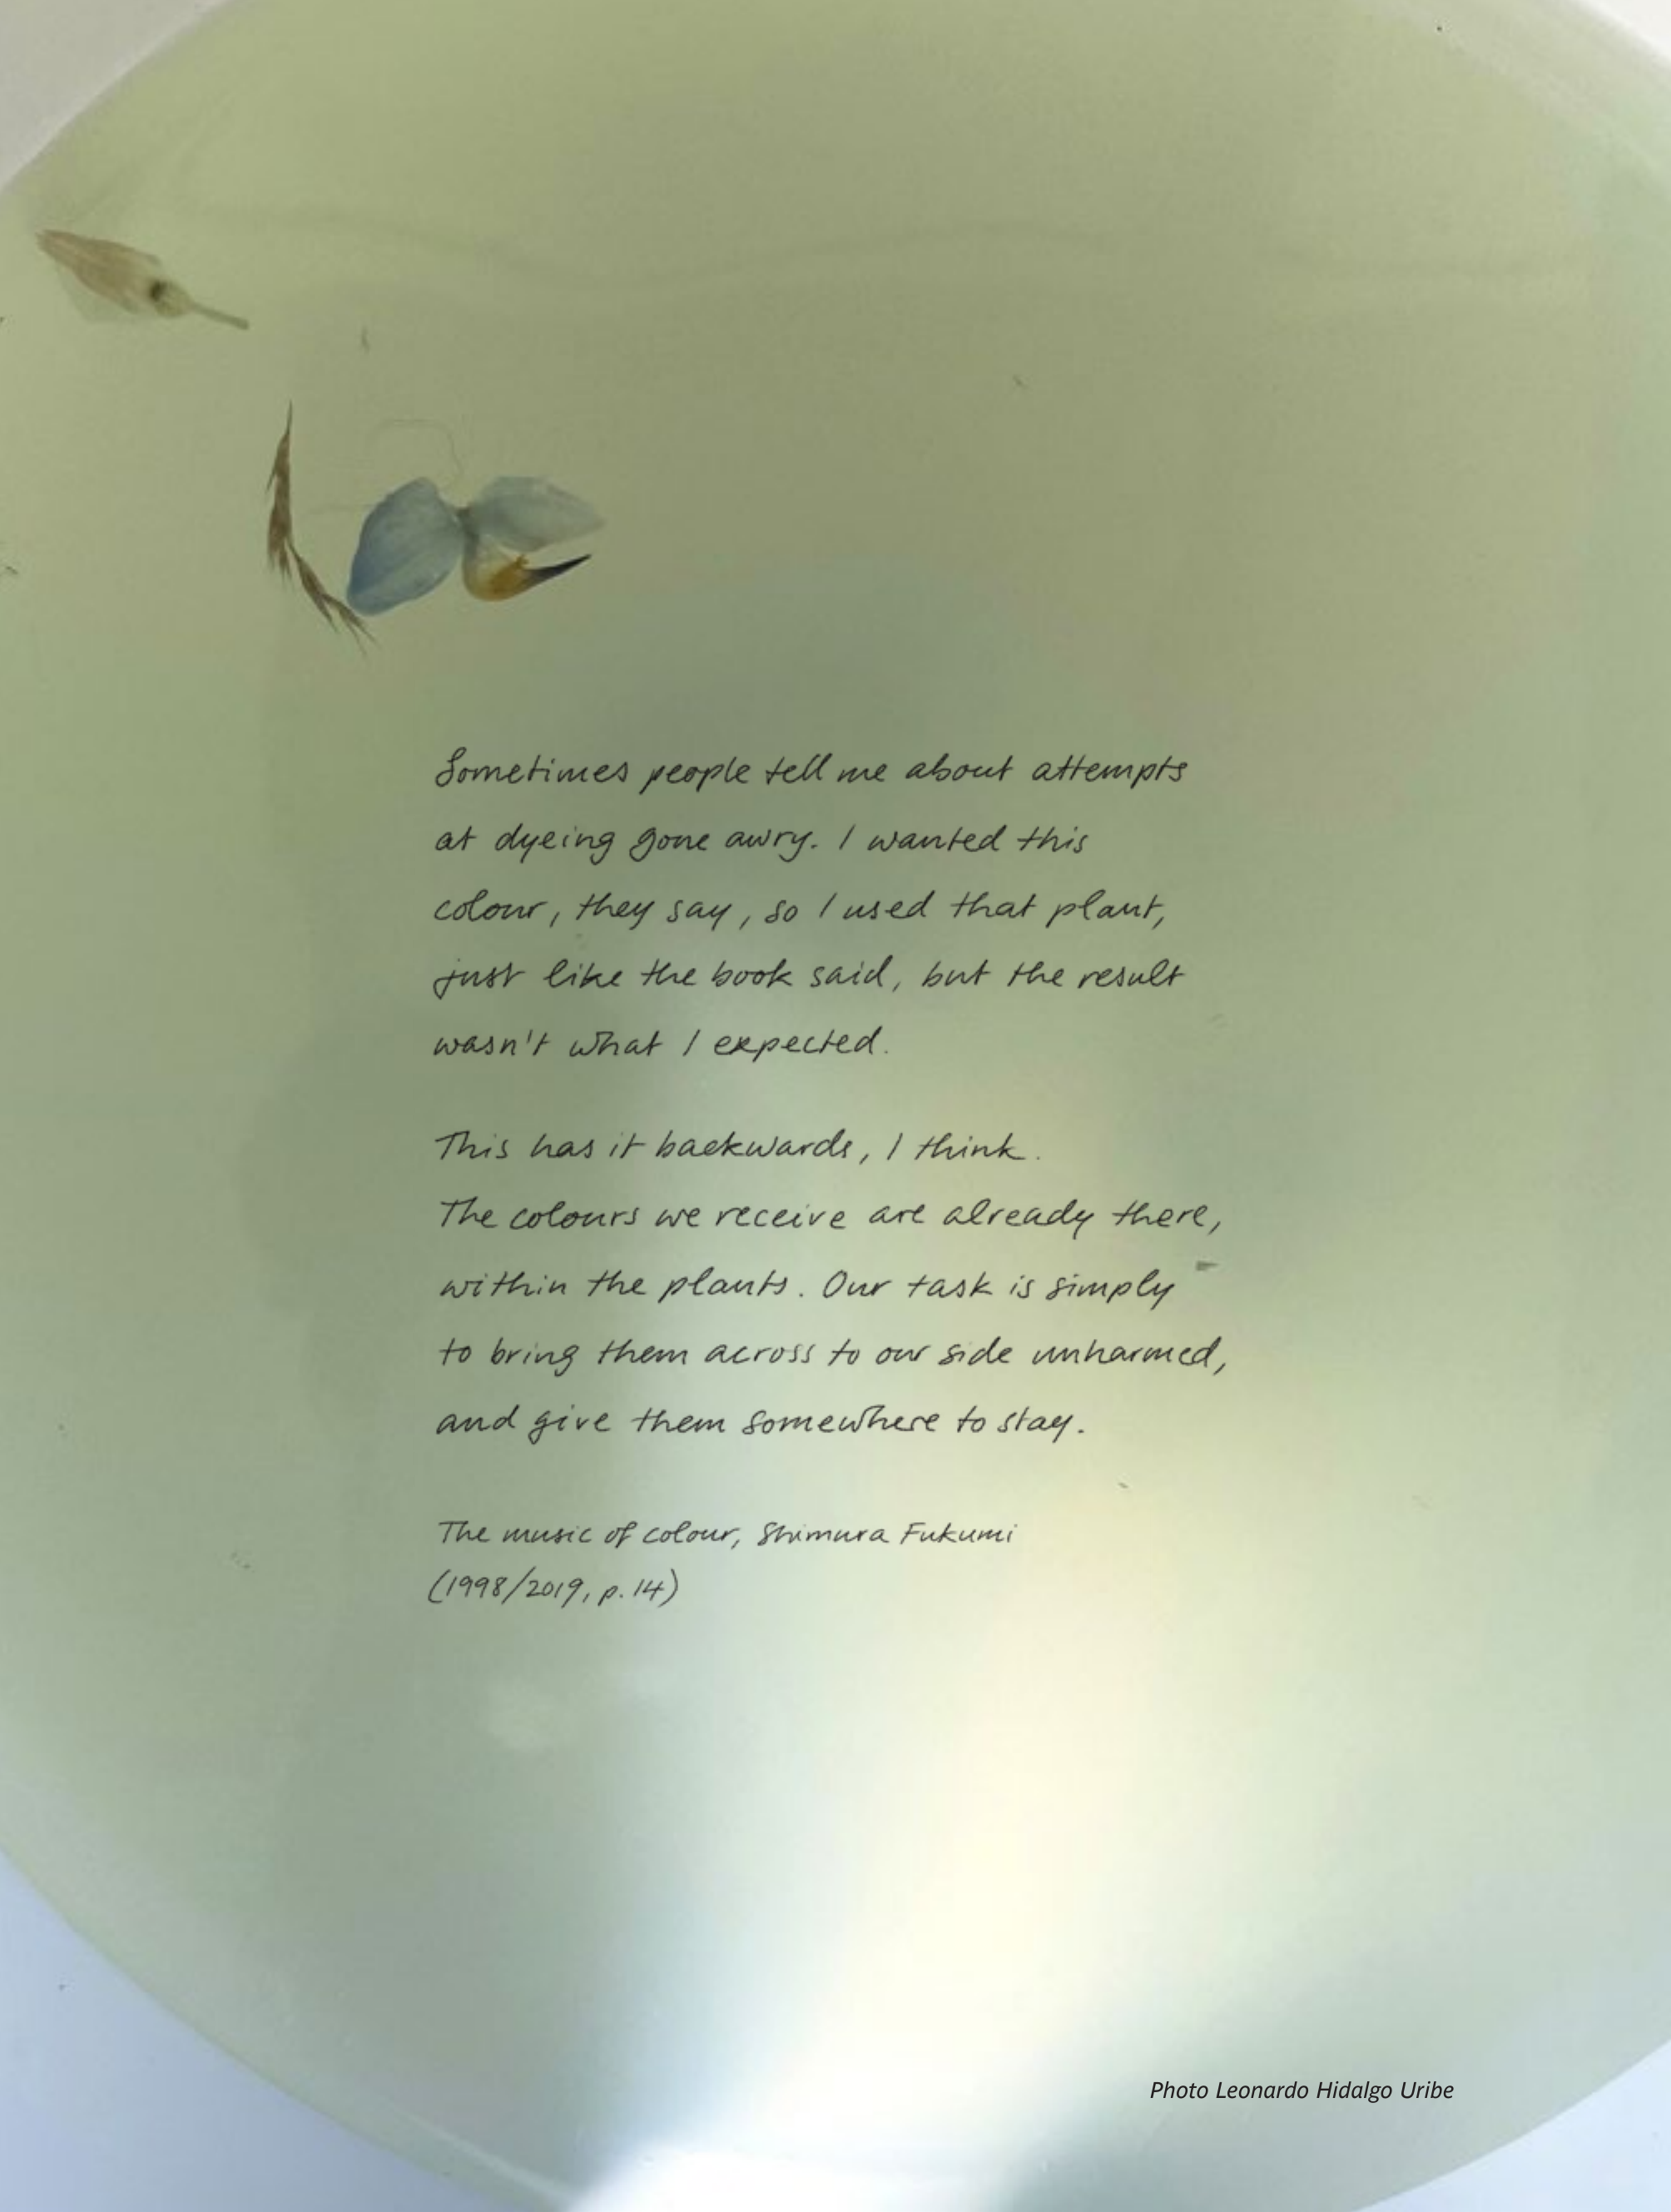 Sometimes people tell me about attempts
at dyeing gone awry. I wanted this
colour, they say, so I used that plant,
just like the book said, but the result
wasn't what I expected.
This has it backwards, I think.
The colours we receive are already there,
within the plants. Our task is simply
to bring them across to our side unharmed,
and give them somewhere to stay.
The music of colour, Shimura Fukumi
(1998/2019, p. 14)
Photo Leonardo Hidalgo Uribe